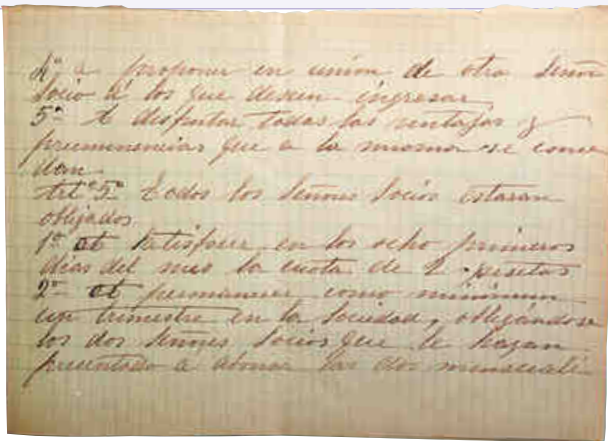 4º a proponer en union de otro Señor
Socio á los que deseen ingresar
5º A disfrutar todas las ventajas y
preeminencias que a la misma se conce
dan.
Artº 5º Todos los Señores Socios estaran
obligados
1º A Satisfacer en los ocho primeros
dias del mes la cuota de 2 pesetas
2º A permanecer como minimum
un trimestre en la Sociedad, obligandose
los dos Señores Socios que le hayan
presentado a abonar las dos mensuali